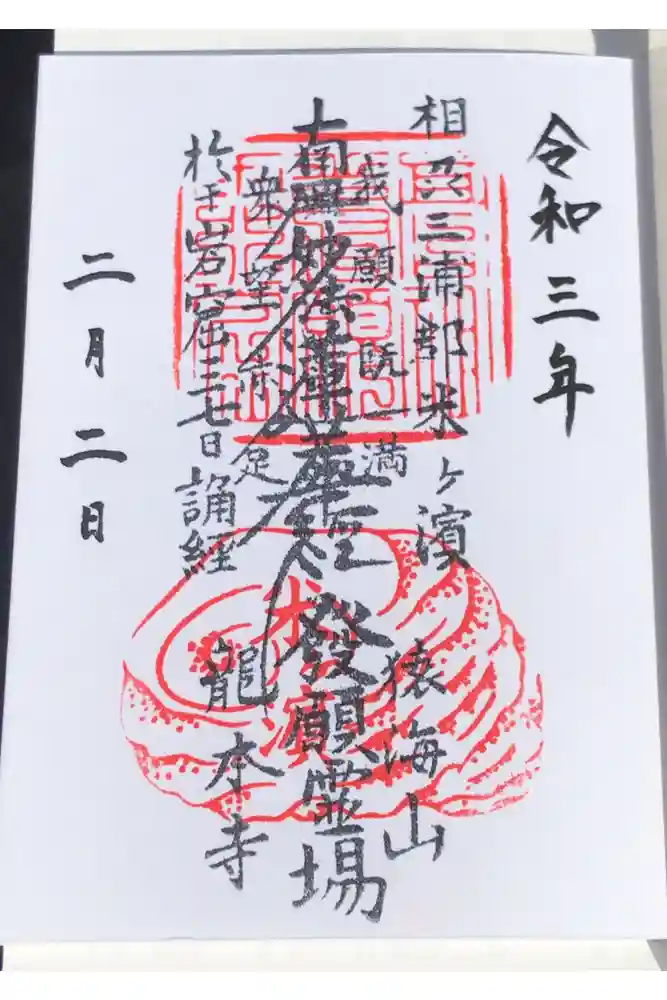 令和三年
相州三浦郡米ヶ濱
我願既満
南無妙法蓮華経
發願霊場
衆望亦足
於于岩窟三七日誦経
猿海山
龍本寺
二月二日
米濱